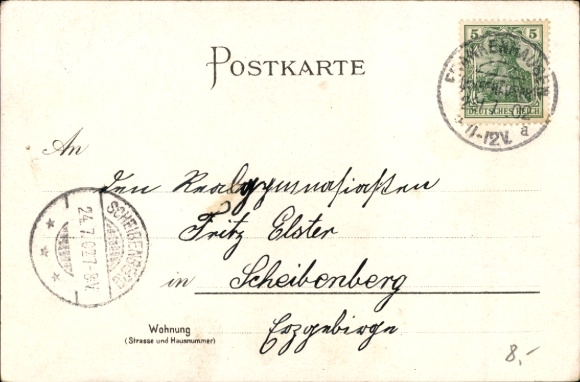 POSTKARTE
5 5
DEUTSCHES REICH
FRANKENHAUSEN
11-12V. a
An
den Realgymnasiasten
Fritz Elster
in Scheibenberg
Erzgebirge
SCHEIBENBERG
24.7.02.7-8V.
Wohnung
(Strasse und Hausnummer)
8,-